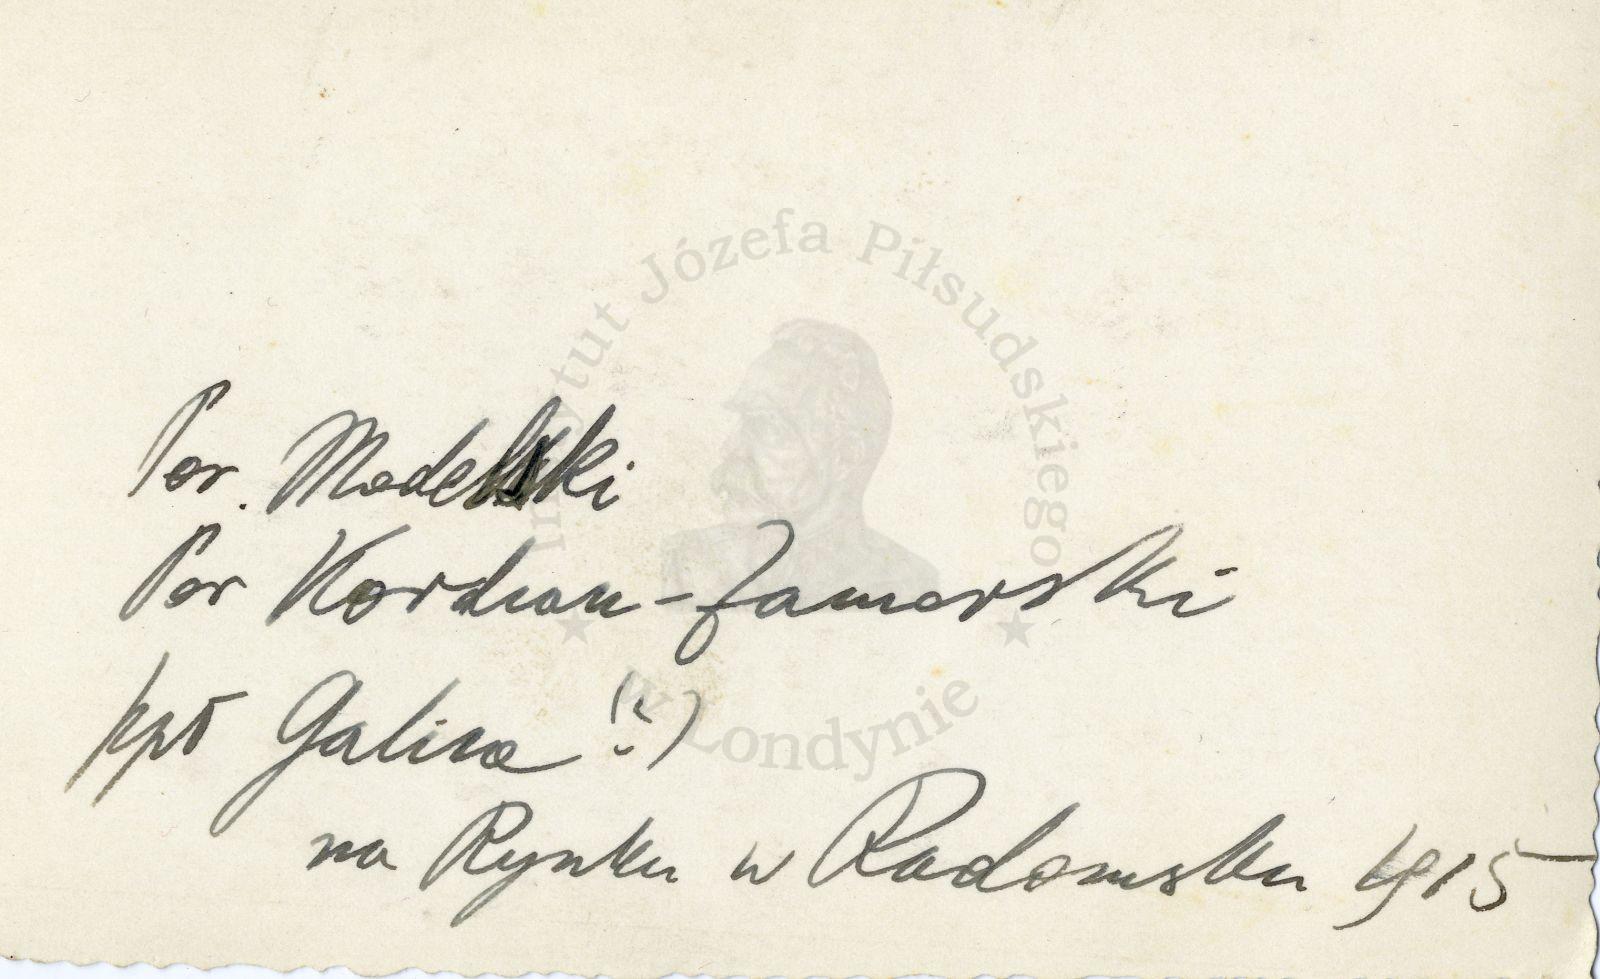 Instytut Józefa Piłsudskiego
w Londynie
Por. Modelski
Por Kordian-Zamorski
kpt Galica (?)
na Rynku w Radomsku 1915